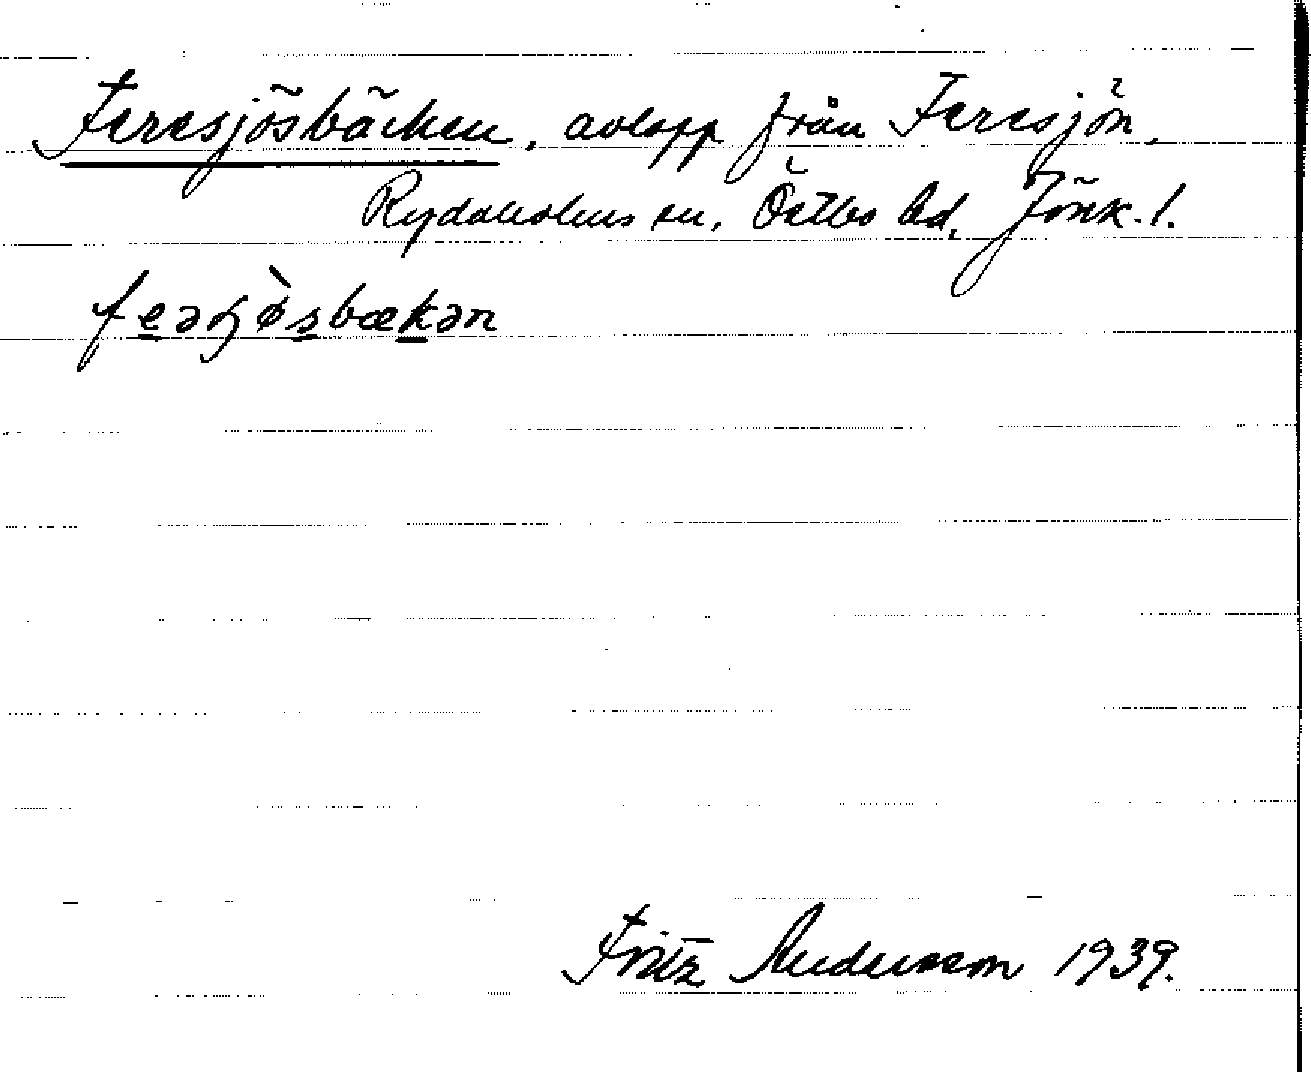 Feresjösbäcken, avlopp från Feresjön,
Rydaholms sn, Östbo hd, Jönk. l.
Fritz Andersson 1939.